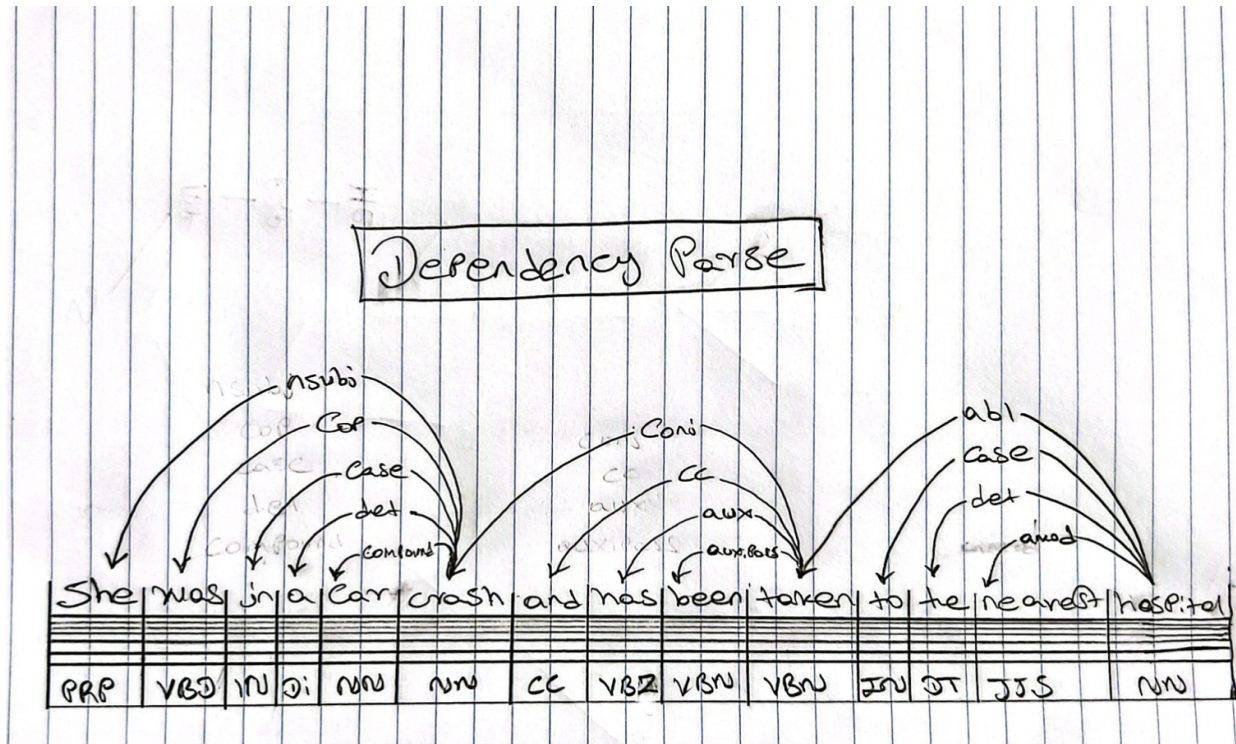 Dependency Parse
nsubj
Cop
case
det
compound
Conj
cc
aux
aux.pass
abl
case
det
amod
She was in a Car crash and has been taken to the nearest hospital
PRP VBD IN Di NN NN CC VBZ VBN VBN IN DT JJS NN